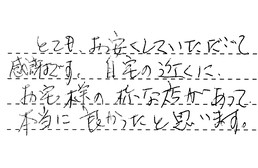 とても、お安くしていただいて
感謝です。自宅の近くに
お宅様の様な店があって
本当に良かったと思います。